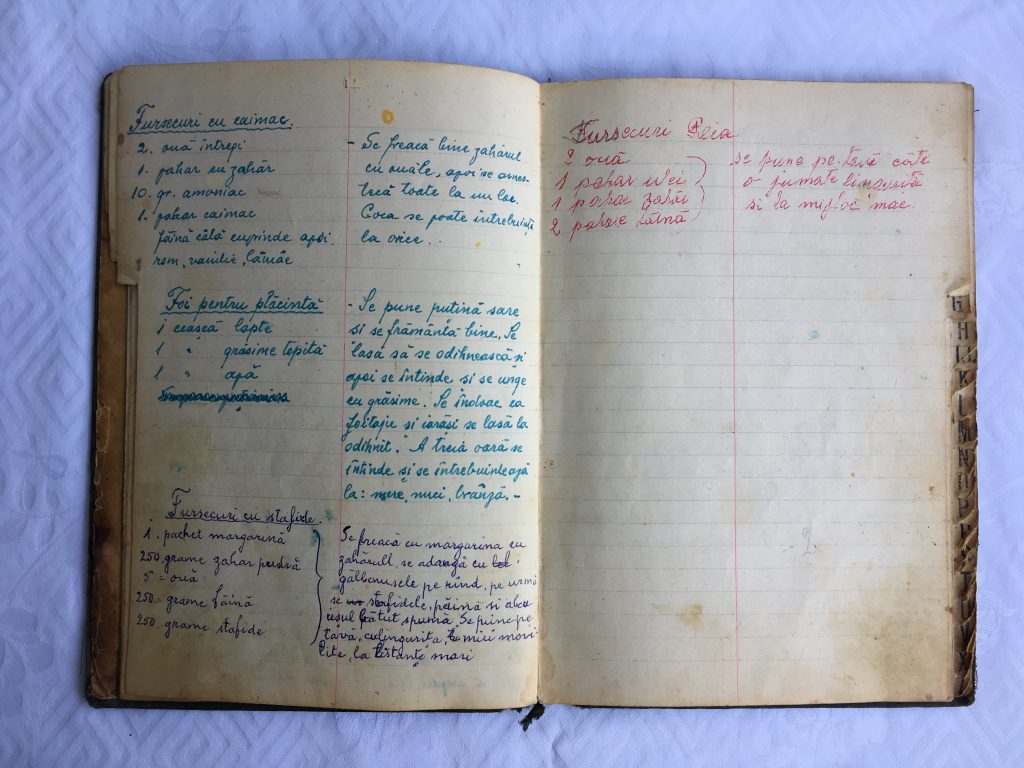 Fursecuri cu caimac.
2. ouă întregi
1. pahar cu zahăr
10. gr. amoniac
1. pahar caimac
făină câtă cuprinde apoi
rom, vanilie, lămâe
- Se freacă bine zahărul
cu ouăle, apoi se ames-
tecă toate la un loc.
Coca se poate întrebuința
la orice..
Foi pentru plăcintă
1 ceașcă lapte
1 " grăsime topită
1 " apă
- Se pune puțină sare
și se frământă bine. Se
lasă să se odihnească și
apoi se întinde și se unge
cu grăsime. Se îndoae ca
foitaju și iarăși se lasă la
odihnit. A treia oară se
întinde și se întrebuințează
la: mere, nuci, brânză. -
Fursecuri cu stafide.
1. pachet margarină
250. grame zahar pudră
5 = ouă
250 = grame făină
250. grame stafide
Se freacă cu margarina cu
zahărull, se adaugă cu
gălbenușele pe rînd, pe urmă
se stafidele, făină si albu
ușul bătut spumă. Se pune pe
tava, culingurita, mici movi
lite, la distanțe mari
Fursecuri
2 ouă
1 pahar ulei
1 pahar zahăr
2 pahare făină
se pune pe tavă câte
o jumate linguriță
si la mijloc mac.
2
G
H
IJ
K
L
M
N
O
P
R
T
U